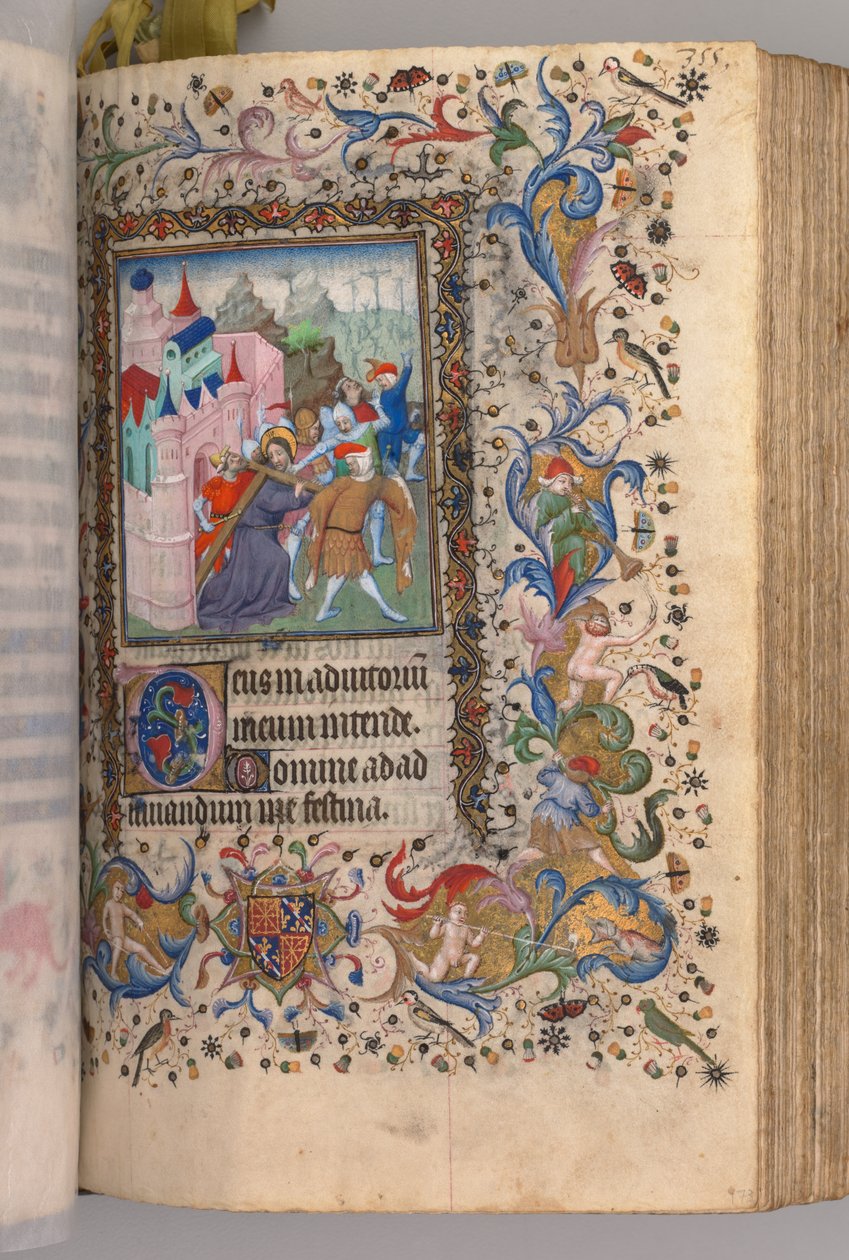 355.
Deus in adiutoriū
meum intende.
Domine ad ad
iuuandum me festina.
73